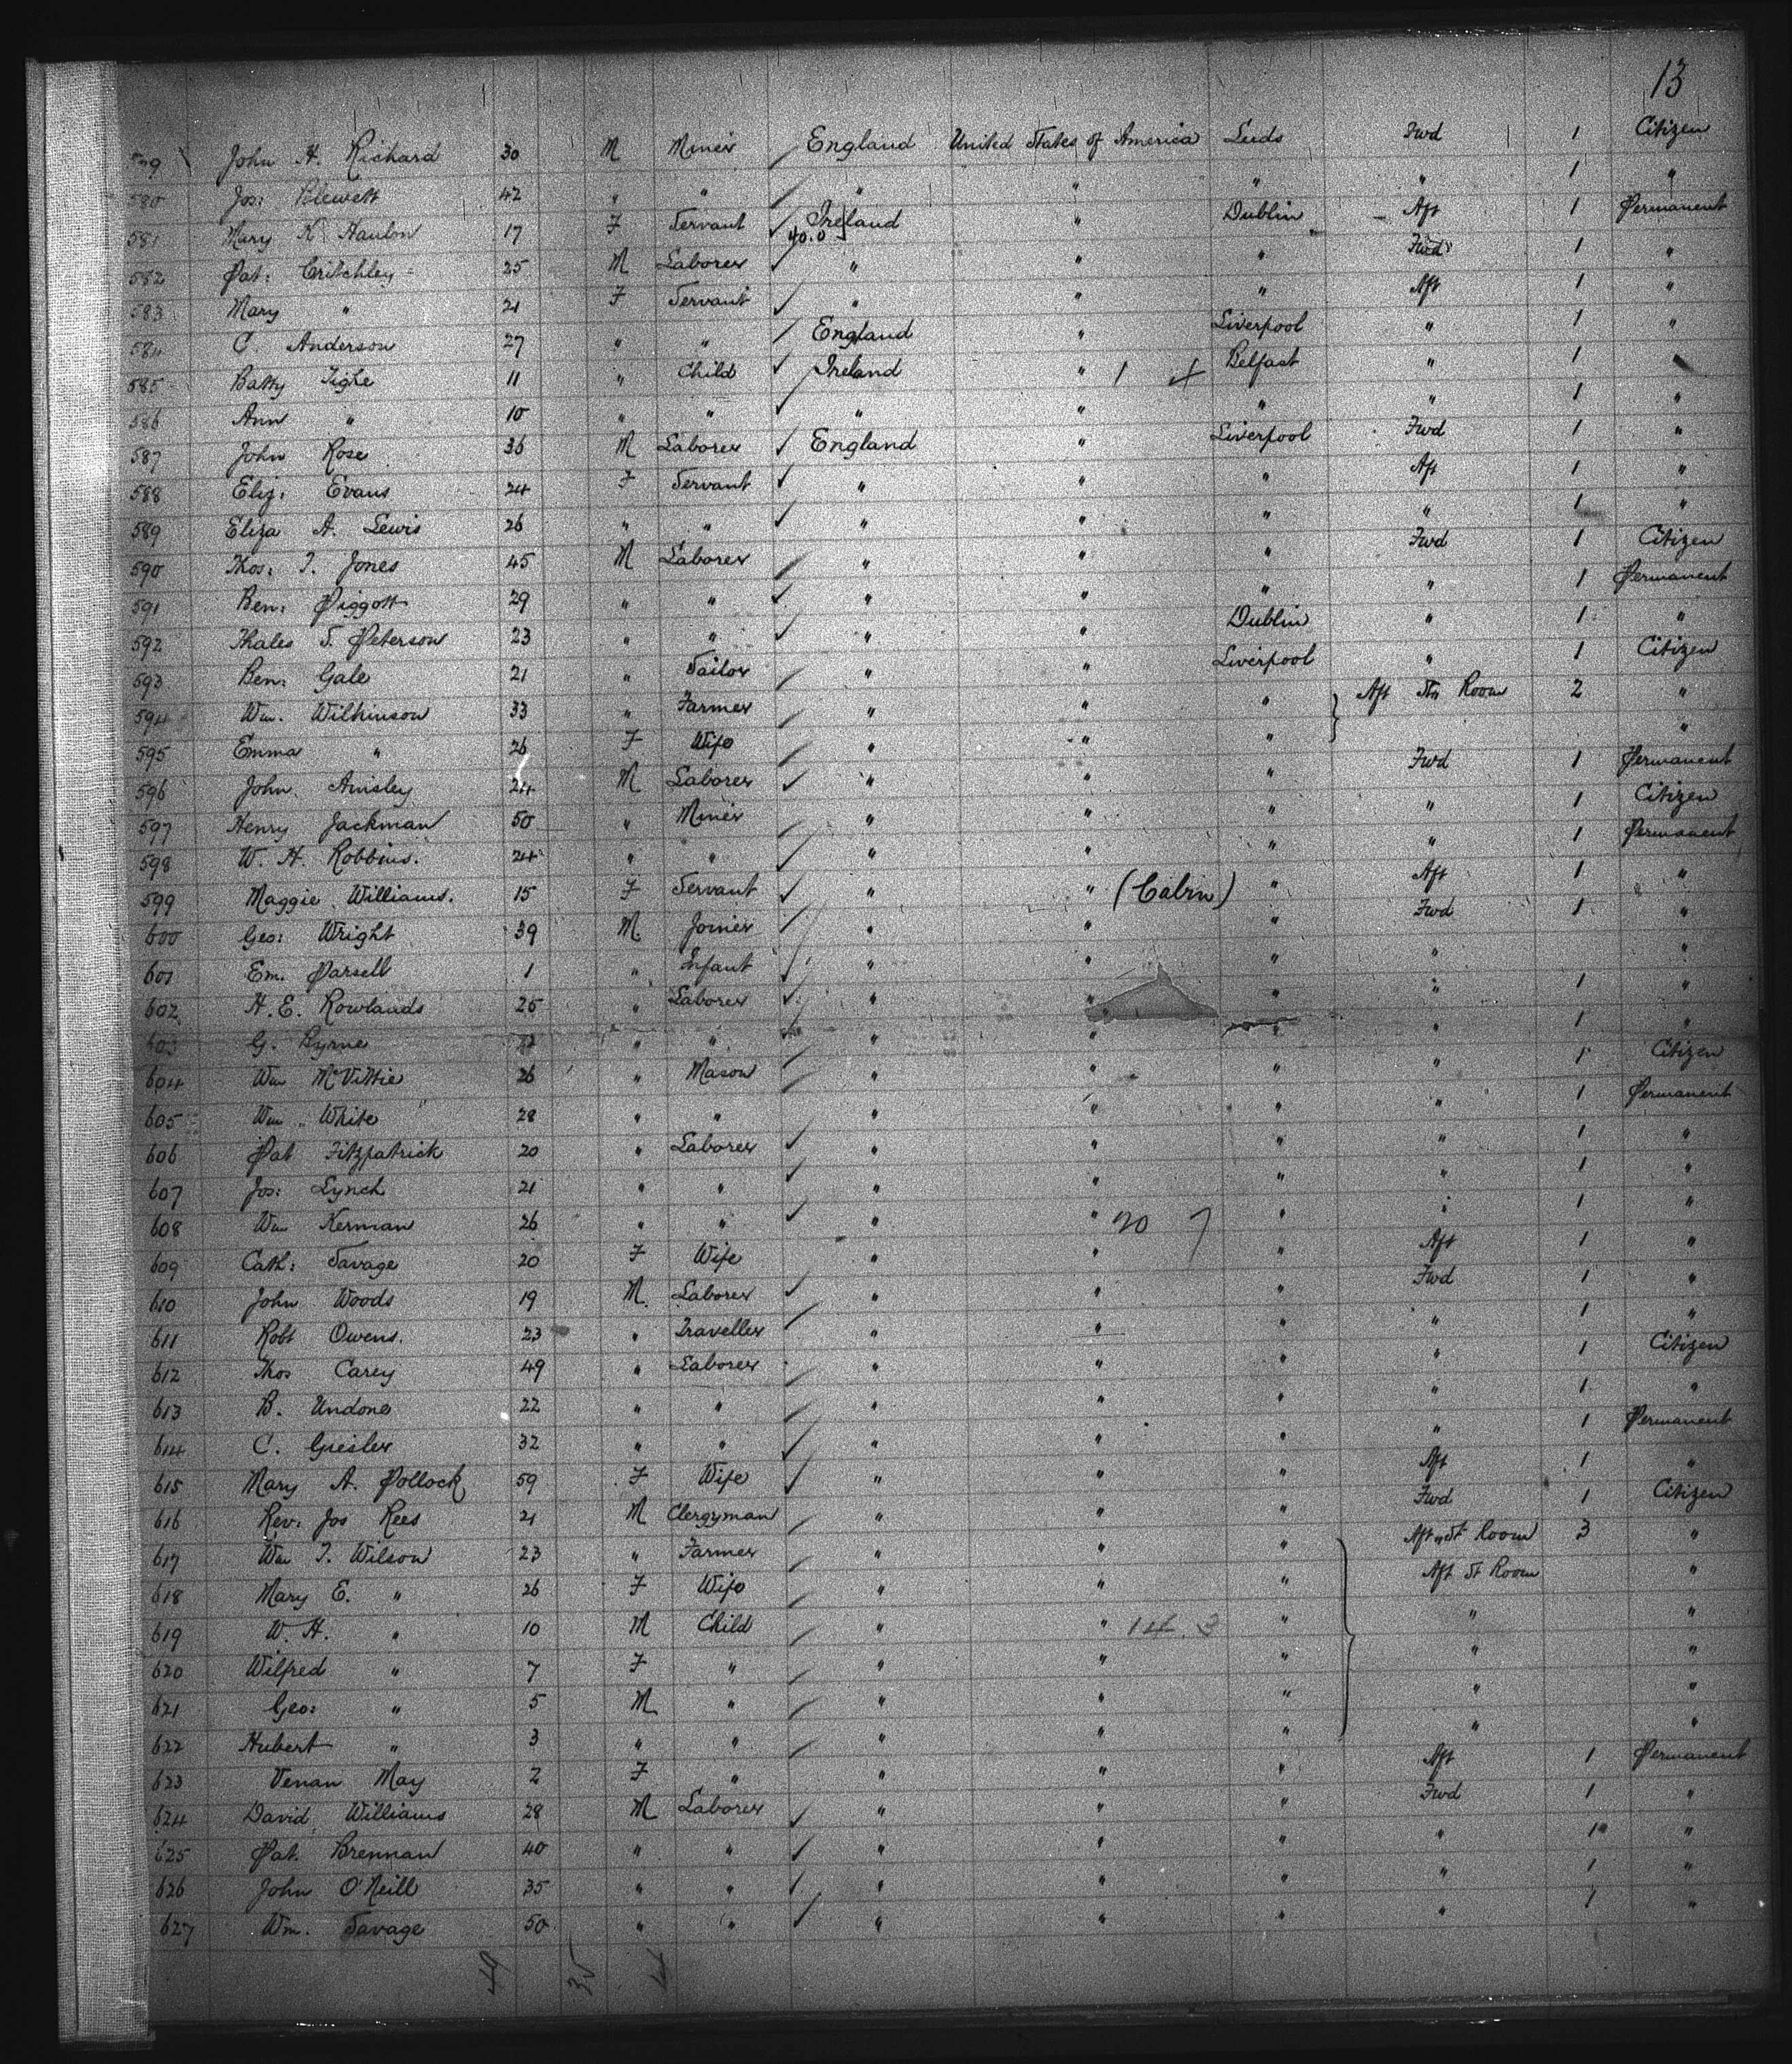 13
579 John H. Richard 30 M Miner England United States of America Leeds Fwd 1 Citizen
580 Jos: Blewett 42 " " " " " " 1 "
581 Mary K Hanlon 17 F Servant Ireland " Dublin Aft 1 Permanent
582 Pat: Critchley 25 M Laborer " " " Fwd 1 "
583 Mary " 21 F Servant " " " Aft 1 "
584 C. Anderson 27 " " England " Liverpool " 1 "
585 Batty Tighe 11 " Child Ireland " 1 Belfast " 1 "
586 Ann " 10 " " " " " " 1 "
587 John Rose 36 M Laborer England " Liverpool Fwd 1 "
588 Eliz: Evans 24 F Servant " " " Aft 1 "
589 Eliza A. Lewis 26 " " " " " " 1 "
590 Thos: J. Jones 45 M Laborer " " " Fwd 1 Citizen
591 Ben: Piggott 29 " " " " " " 1 Permanent
592 Thales S. Peterson 23 " " " " Dublin " 1 "
593 Ben: Gale 21 " Sailor " " Liverpool " 1 Citizen
594 Wm. Wilkinson 33 " Farmer " " " Aft Stn Room 2 "
595 Emma " 26 F Wife " " " "
596 John Ainsley 24 M Laborer " " " Fwd 1 Permanent
597 Henry Jackman 50 " Miner " " " " 1 Citizen
598 W. H. Robbins. 24 " " " " " " 1 Permanent
599 Maggie Williams. 15 F Servant " " (Cabin) " Aft 1 "
600 Geo: Wright 39 M Joiner " " " Fwd 1 "
601 Em. Parsell 1 " Infant " " " " "
602 H. E. Rowlands 25 " Laborer " " " " 1 "
603 G. Byrne " " " " " " 1 "
604 Wm McVittie 26 " Mason " " " " 1 Citizen
605 Wm White 28 " " " " " " 1 Permanent
606 Pat Fitzpatrick 20 " Laborer " " " " 1 "
607 Jos: Lynch 21 " " " " " " 1 "
608 Wm Kerman 26 " " " " 20 7 " " 1 "
609 Cath: Savage 20 F Wife " " " Aft 1 "
610 John Woods 19 M Laborer " " " Fwd 1 "
611 Robt Owens. 23 " Traveller " " " " 1 "
612 Thos Carey 49 " Laborer " " " " 1 Citizen
613 B. Undone 22 " " " " " " 1 "
614 C. Giesler 32 " " " " " " 1 Permanent
615 Mary A. Pollock 59 F Wife " " " Aft 1 "
616 Rev: Jos Rees 21 M Clergyman " " " Fwd 1 Citizen
617 Wm J. Wilson 23 " Farmer " " " Aft St Room 3 "
618 Mary E. " 26 F Wife " " " Aft St Room "
619 W. H. " 10 M Child " " 14 3 " " "
620 Wilfred " 7 F " " " " " "
621 Geo: " 5 M " " " " " "
622 Hubert " 3 " " " " " " "
623 Venan May 2 F " " " " Aft 1 Permanent
624 David Williams 28 M Laborer " " " Fwd 1 "
625 Pat. Brennan 40 " " " " " " 1 "
626 John O'Neill 35 " " " " " " 1 "
627 Wm. Savage 50 " " " " " " 1 "
49 35